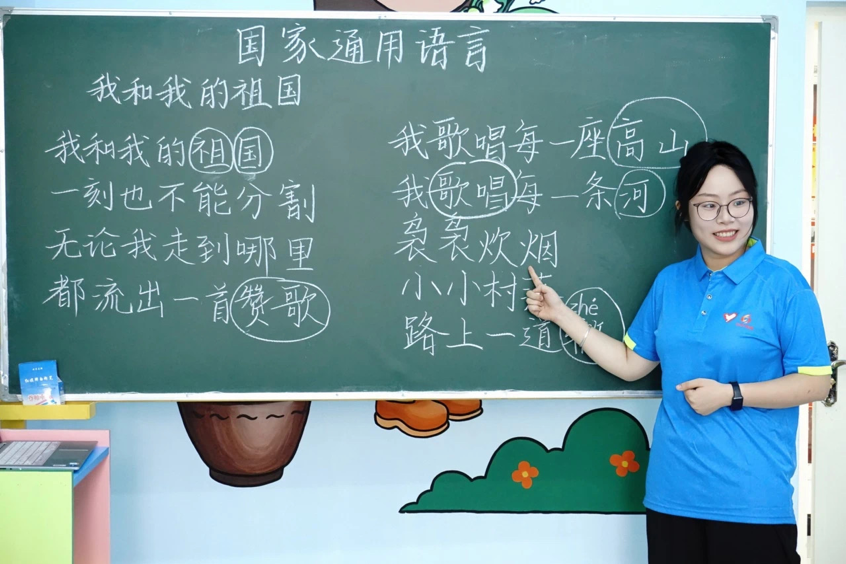 国家通用语言
我和我的祖国
我和我的祖国
一刻也不能分割
无论我走到哪里
都流出一首赞歌
我歌唱每一座高山
我歌唱每一条河
袅袅炊烟
小小村
zhé
路上一道